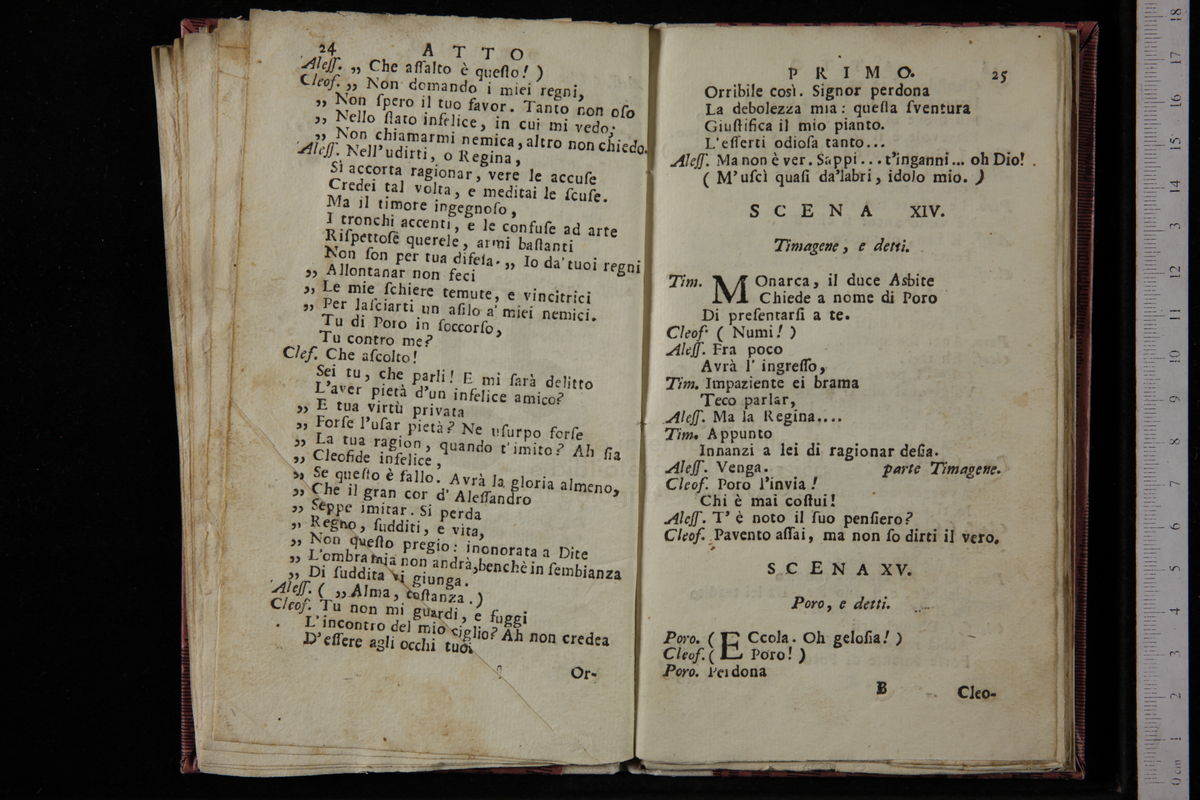 24 ATTO
Aleſſ. „ Che aſſalto è queſto! )
Cleof. „ Non domando i miei regni,
„ Non ſpero il tuo favor. Tanto non oſo
„ Nello ſtato infelice, in cui mi vedo;
„ Non chiamarmi nemica, altro non chiedo.
Aleſſ. Nell'udirti, o Regina,
Sì accorta ragionar, vere le accuſe
Credei tal volta, e meditai le ſcuſe.
Ma il timore ingegnoſo,
I tronchi accenti, e le confuſe ad arte
Riſpettoſe querele, armi baſtanti
Non ſon per tua difeſa. „ Io da' tuoi regni
„ Allontanar non feci
„ Le mie ſchiere temute, e vincitrici
„ Per laſciarti un aſilo a' miei nemici.
Tu di Poro in ſoccorſo,
Tu contro me?
Clef. Che aſcolto!
Sei tu, che parli! E mi ſarà delitto
L'aver pietà d'un infelice amico?
„ E tua virtù privata
„ Forſe l'uſar pietà? Ne uſurpo forſe
„ La tua ragion, quando t'imito? Ah ſia
„ Cleofide infelice,
„ Se queſto è fallo. Avrà la gloria almeno,
„ Che il gran cor d' Aleſſandro
„ Seppe imitar. Si perda
„ Regno, ſudditi, e vita,
„ Non queſto pregio: inonorata a Dite
„ L'ombra mia non andrà, benchè in ſembianza
„ Di ſuddita vi giunga.
Aleſſ. ( „ Alma, coſtanza. )
Cleof. Tu non mi guardi, e fuggi
L'incontro del mio ciglio? Ah non credea
D'eſſere agli occhi tuoi
Or-
PRIMO. 25
Orribile così. Signor perdona
La debolezza mia: queſta ſventura
Giuſtifica il mio pianto.
L'eſſerti odioſa tanto...
Aleſſ. Ma non è ver. Sappi... t'inganni... oh Dio!
( M'uſcì quaſi da'labri, idolo mio. )
SCENA XIV.
Timagene, e detti.
Tim. MOnarca, il duce Asbite
Chiede a nome di Poro
Di preſentarſi a te.
Cleof. ( Numi! )
Aleſſ. Fra poco
Avrà l' ingreſſo,
Tim. Impaziente ei brama
Teco parlar,
Aleſſ. Ma la Regina....
Tim. Appunto
Innanzi a lei di ragionar deſia.
Aleſſ. Venga. parte Timagene.
Cleof. Poro l'invia!
Chi è mai coſtui!
Aleſſ. T' è noto il ſuo penſiero?
Cleof. Pavento aſſai, ma non ſo dirti il vero.
SCENA XV.
Poro, e detti.
Poro. ( ECcola. Oh geloſia! )
Cleof. ( Poro! )
Poro. Perdona
B Cleo-